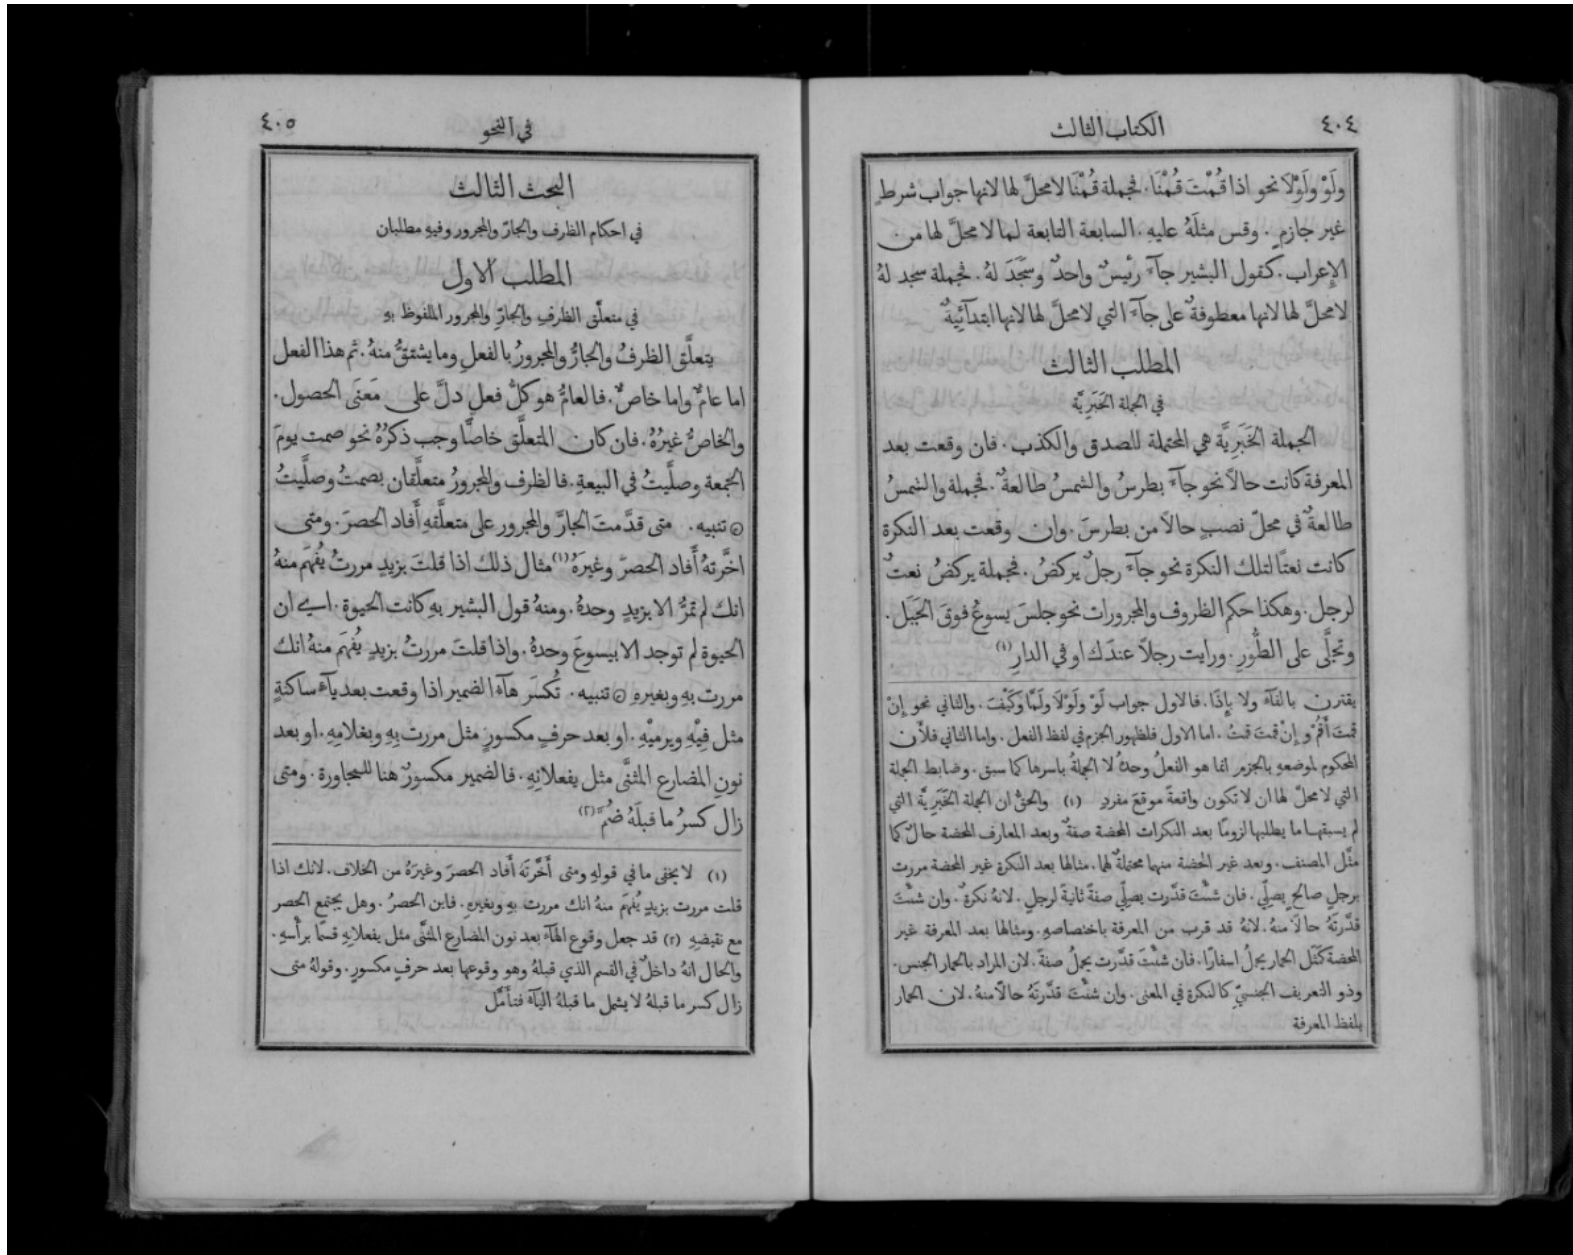 ٤٠٤
الكتاب الثالث
ولَوْ ولَوْلَا نحو اذا قُمْتَ قُمْنَا. فجملة قُمْنَا لا محلَّ لها لانها جواب شرطٍ
غير جازمٍ. وقس مثلَهُ عليهِ. السابعة التابعة لما لا محلَّ لها من
الإعراب. كقول البشير جآءَ رئيسٌ واحدٌ وسَجَدَ لهُ. فجملة سجد لهُ
لا محلَّ لها لانها معطوفةٌ على جآءَ التي لا محلَّ لها لانها ابتدآئيةٌ
المطلب الثالث
في الجملة الخَبَرِيَّة
الجملة الخَبَرِيَّة هي المحتملة للصدق والكذب. فان وقعت بعد
المعرفة كانت حالًا نحو جآءَ بطرسُ والشمسُ طالعةٌ. فجملة والشمسُ
طالعةٌ في محلّ نصبٍ حالًا من بطرسَ. وان وقعت بعد النكرة
كانت نعتًا لتلك النكرة نحو جآءَ رجلٌ يركضُ. فجملة يركضُ نعتٌ
لرجل. وهكذا حكم الظروف والمجرورات نحو جلسَ يسوعُ فوقَ الجَبَل.
وتجلَّى على الطُّورِ. ورايت رجلًا عندَك او في الدارِ (١)
يقترن بالفآءَ ولا بإِذَا. فالاول جواب لَوْ ولَوْلَا ولَمَّا وكَيْفَ. والثاني نحو إِنْ
قمتَ أَقُمْ وإِنْ قمتَ قمتُ. اما الاول فلظهور الجزم في لفظ الفعل. واما الثاني فلأَن
المحكوم لموضعهِ بالجزم انما هو الفعلُ وحدهُ لا الجملةُ باسرها كما سبق. وضابط الجملة
التي لا محلّ لها ان لا تكون واقعةً موقعَ مفردٍ (١) والحقُّ ان الجملة الخَبَرِيَّة التي
لم يسبقها ما يطلبها لزومًا بعد النكرات المحضة صفةٌ وبعد المعارف المحضة حالٌ كما
مثَّل المصنف. وبعد غير المحضة منهما محتملةٌ لهما. مثالها بعد النكرة غير المحضة مررت
برجلٍ صالحٍ يصلّي. فان شئتَ قدَّرت يصلّي صفةً ثانيةً لرجلٍ. لانهُ نكرةٌ. وان شئتَ
قدَّرتَهُ حالًا منهُ. لانهُ قد قرب من المعرفة باختصاصهِ. ومثالها بعد المعرفة غير
المحضة كمَثَل الحمار يحملُ اسفارًا. فان شئتَ قدَّرت يحملُ صفةً. لان المراد بالحمار الجنس.
وذو التعريف الجنسيّ كالنكرة في المعنى. وان شئتَ قدَّرتَهُ حالًا منهُ. لان الحمار
بلفظ المعرفة
في النحو
٤٠٥
البحث الثالث
في احكام الظرف والجارّ والمجرور وفيهِ مطلبان
المطلب الاول
في متعلَّق الظرفِ والجارِّ والمجرور الملفوظ بهِ
يتعلَّق الظرفُ والجارُّ والمجرورُ بالفعلِ وما يشتقُّ منهُ. ثم هذا الفعل
اما عامٌّ واما خاصٌّ. فالعامُّ هو كلُّ فعلٍ دلَّ على مَعنَى الحصول.
والخاصُّ غيرُهُ. فان كان المتعلَّق خاصًّا وجب ذكرُهُ نحو صمت يومَ
الجمعة وصلَّيتُ في البيعةِ. فالظرف والمجرورُ متعلَّقان بصمتُ وصلَّيتُ
۞ تنبيه. متى قدَّمتَ الجارَّ والمجرور على متعلَّقهِ أَفاد الحصرَ. ومتى
اخَّرتهُ أَفاد الحصرَ وغيرَهُ (١) مثال ذلك اذا قلتَ بزيدٍ مررتُ يُفهَم منهُ
انك لم تمرَّ الا بزيدٍ وحدهُ. ومنهُ قول البشير بهِ كانت الحيوة. اي ان
الحيوة لم توجد الا بيسوعَ وحدهُ. واذا قلتَ مررتُ بزيدٍ يُفهَم منهُ انك
مررت بهِ وبغيرهِ ۞ تنبيه. تُكسَر هآءُ الضمير اذا وقعت بعد يآءٍ ساكنةٍ
مثل فِيْهِ ويرميْهِ. او بعد حرفٍ مكسورٍ مثل مررت بِهِ وبغلامِهِ. او بعد
نونِ المضارع المثنَّى مثل يفعلانِهِ. فالضمير مكسورٌ هنا للمجاورة. ومتى
زال كسرُ ما قبلَهُ ضُمَّ (٢)
(١) لا يخفى ما في قولهِ ومتى أَخَّرتَهُ أَفاد الحصرَ وغيرَهُ من الخلاف. لانك اذا
قلت مررت بزيدٍ يُفهَم منهُ انك مررت بهِ وبغيرهِ. فاين الحصرُ. وهل يجتمع الحصر
مع نقيضهِ (٢) قد جعل وقوع الهآءَ بعد نون المضارع المثنَّى مثل يفعلانِهِ قسمًا برأْسهِ.
والحال انهُ داخلٌ في القسم الذي قبلهُ وهو وقوعها بعد حرفٍ مكسورٍ. وقولهُ متى
زال كسر ما قبلهُ لا يشمل ما قبلهُ اليآءَ فتأَمَّل